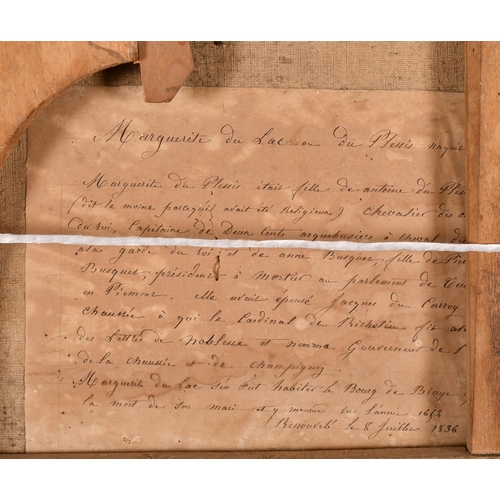 Marguerite du Lac ou du Plessis naquit
Marguerite du Plessis était fille de antoine du Ples
(dit le moine parcequ'il avait été Religieux) chevalier des o
du roi, Capitaine de Deux Cents arquebusiers à cheval d
a la garde du roi et de anne Busquet, fille de Pie
Busquet, président à Mortier au parlement de
en Piémont. elle avait épousé Jacques du Carroy
chaussée à qui le Cardinal de Richelieu fit
des Lettres de Noblesse et nomma Gouverneur de l
de la chaussée et de champigny.
Marguerite du Lac s'en fut habiter le Bourg de Braye
la mort de son mari et y mourut vers l'année 1652
Renouvelé le 8 Juillet 1836